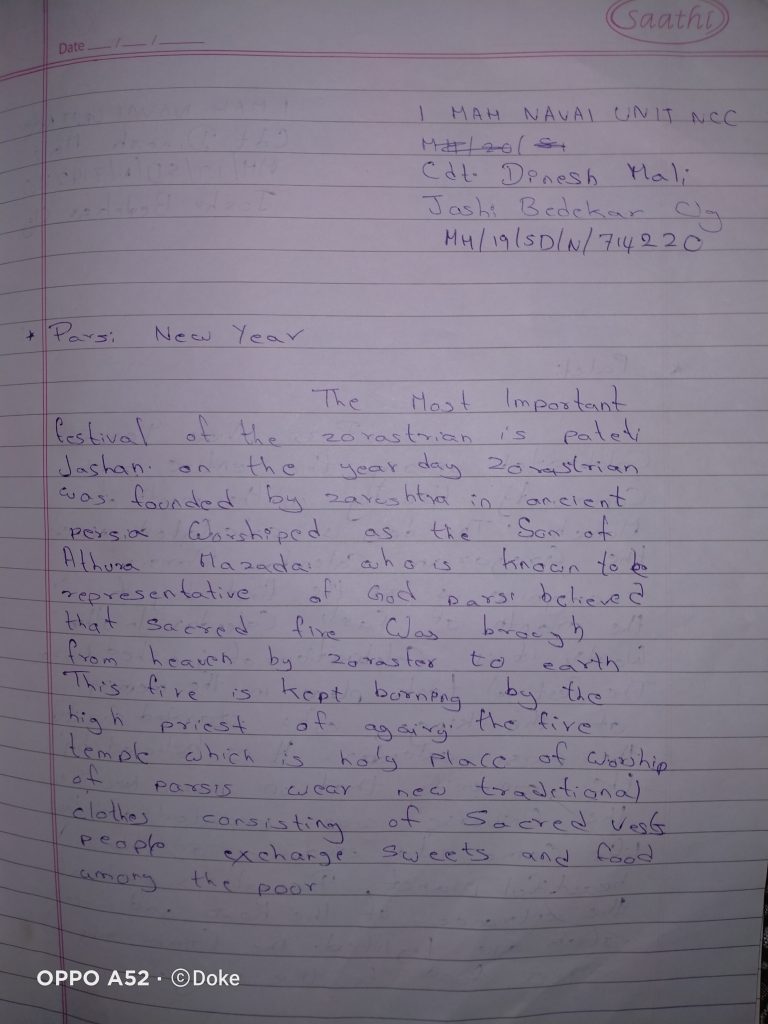 saathi
Date __/__/____
1 MAH NAVAl UNIT NCC
Cdt. Dinesh Mali
Joshi Bedekar Clg
MH/19/SD/N/714220
* Parsi New Year
The Most Important
festival of the zorastrian is pateti
Jashan. on the year day zorastrian
was founded by zarashtra in ancient
persia Worshiped as the Son of
Athura Mazada who is known to be
representative of God parsi believed
that sacred fire Was brough
from heaven by zoraster to earth
This fire is kept borning by the
high priest of agairy the fire
temple which is holy place of worship
of parsis wear new traditional
clothes consisting of Sacred vests
people exchange sweets and food
among the poor.
OPPO A52 · ©Doke